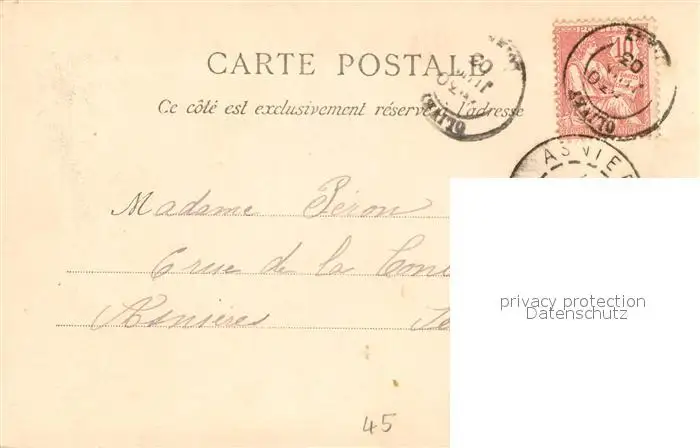 CARTE POSTALE
Ce côté est exclusivement réservé l'adresse
10
OLIVET
03
OLIVET
03
ASNIE
Madame Péron
6 rue de la
Asnières
privacy protection
Datenschutz
45